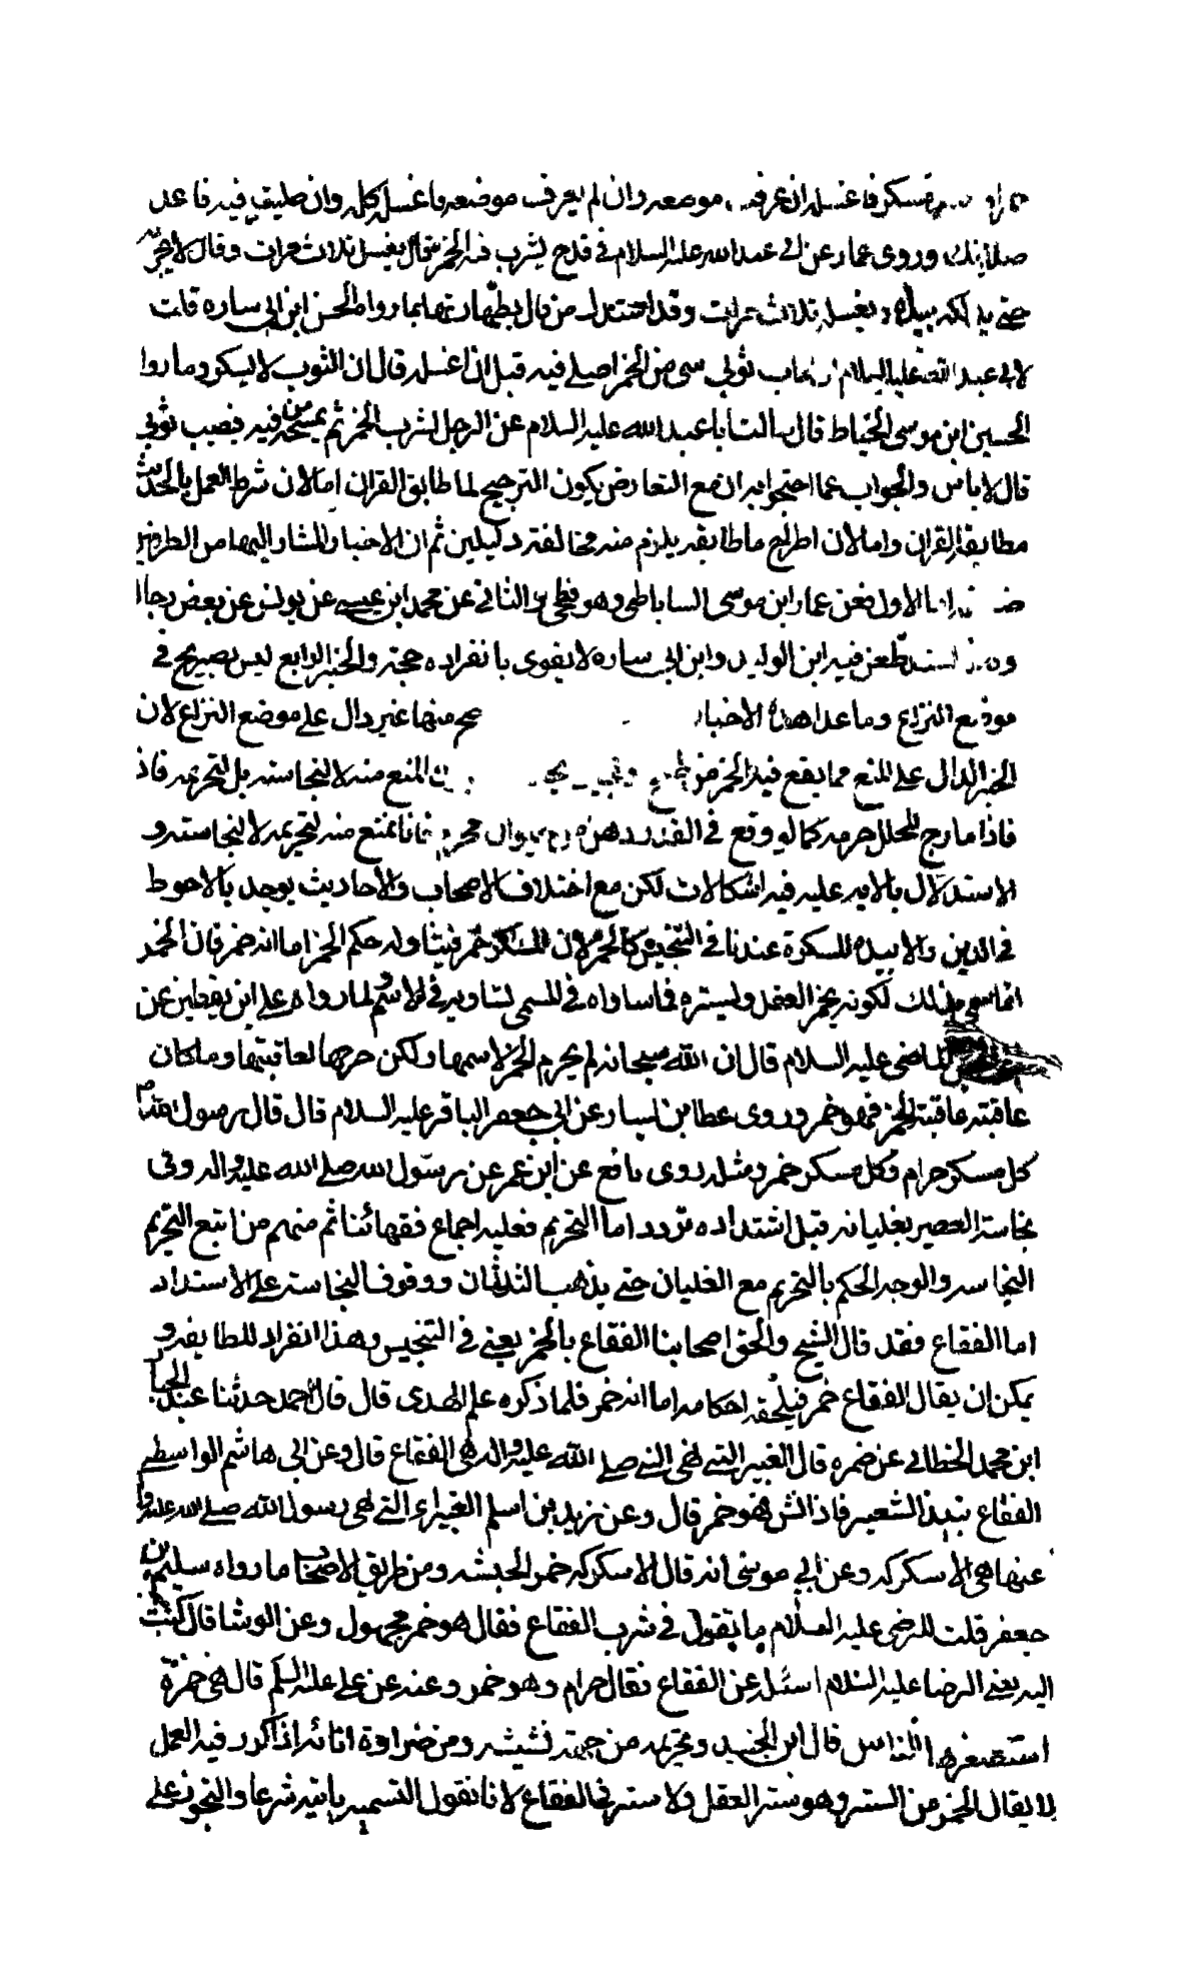 مسكر فاغسله ان عرفت موضعه وان لم يعرف موضعه فاغسله كله وان صليت فيه فاعد
صلاتك وروى عمار عن ابي عبد الله عليه السلام في قدح يشرب فيه الخمر قال يغسل ثلاث مرات وقال لا يجزيه
حتى يدلكه بيده ويغسله ثلاث مرات وقد استدل من قال بطهارتها بما رواه الحسن ابن ابي ساره قلت
لابي عبد الله عليه السلام ان اصاب ثوبي شي من الخمر اصلي فيه قبل ان اغسله قال ان الثوب لا يسكر وما روا
الحسين ابن موسى الخياط قال سالت ابا عبد الله عليه السلام عن الرجل يشرب الخمر ثم يمسحه من فيه فيصيب ثوبي
قال لا باس والجواب عما احتجوا به ان مع التعارض يكون الترجيح لما طابق القران اما لان شرط العمل بالحديث
مطابقة القران واما لان اطراح ما طابقه يلزم منه مخالفة دليلين ثم ان الاخبار المشار اليها من الطرفين
الاول فعن عمار ابن موسى الساباطي وهو فطحي والثاني عن محمد ابن عيسى عن يونس عن بعض رجال
طعن فيه ابن الوليد وابن ابي ساره لا يقوى بانفراده حجة والخبر الرابع ليس بصريح في
موضع النزاع وما عدا هذه الاخبار صح منها غير دال على موضع النزاع لان
الخبر الدال على المنع مما يقع فيه الخمر من المنع منه لا لنجاسته بل لتحريمه فاذ
فاذا مازج المحلل حرمه كما لو وقع في القدر دهن من حيوان محرم فانا نمنع منه لتحريمه لا لنجاسته و
الاستدلال بالاية عليه فيه اشكالات لكن مع اختلاف الاصحاب والاحاديث يوجد بالاحوط
في الدين والانبذة المسكرة عندنا في التنجيس كالخمر لان المسكر خمر فيتناوله حكم الخمر اما انه خمر فلان الخمر
انما سمي بذلك لكونه يخمر العقل ويستره فما ساواه في المسمى يساويه في الاسم ولما رواه علي ابن يقطين عن
الماضي عليه السلام قال ان الله سبحانه لم يحرم الخمر لاسمها ولكن حرمها لعاقبتها وما كان
عاقبته عاقبة الخمر فهو خمر وروى عطا بن يسار عن ابي جعفر الباقر عليه السلام قال قال رسول الله ص
كل مسكر حرام وكل مسكر خمر ومثله روى نافع عن ابن عمر عن رسول الله صلى الله عليه واله وفى
نجاسة العصير بغليانه قبل اشتداده تردد اما التحريم فعليه اجماع فقهائنا ثم منهم من اتبع التحريم
النجاسه والوجه الحكم بالتحريم مع الغليان حتى يذهب الثلثان ووقوف النجاسة على الاستداد
اما الفقاع فقد قال الشيخ والحق اصحابنا الفقاع بالخمر يعني في التنجيس وهذا انفراد للطايفة و
يمكن ان يقال الفقاع خمر فيلحقه احكامه اما انه خمر فلما ذكره علم الهدى قال قال احمد حدثنا عبد الجبار
ابن محمد الخطابي عن ضمره قال الغبيرا التي نهى النبي صلى الله عليه واله هي الفقاع قال وعن ابي هاشم الواسطي
الفقاع نبيذ الشعير فاذا نش فهو خمر قال وعن زيد بن اسلم الغبيراء التي نهى رسول الله صلى الله عليه وا
عنها هي الاسكركه وعن ابي موسى انه قال الاسكركه خمر الحبشه ومن طريق الاصحاب ما رواه سليمن بن
جعفر قلت للرضى عليه السلام ما تقول في شرب الفقاع فقال هو خمر مجهول وعن الوشا قال كتبت
اليه يعني الرضا عليه السلام اسئله عن الفقاع فقال حرام وهو خمر وعنه عن علي عليه السلم قال هي خمرة
استصغرها الناس قال ابن الجنيد وتحريمه من جهة نشيشه ومن ضراوة انائه اذا كرر فيه العمل
لا يقال الخمر من الستر وهو ستر العقل ولا ستر في الفقاع لانا نقول التسمية ثابتة شرعا والتجوز على